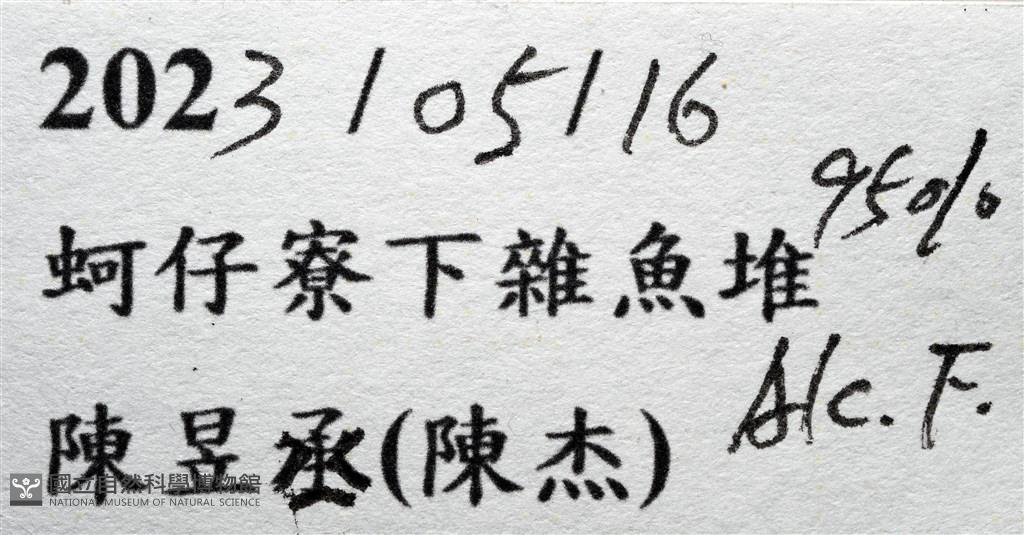 2023/05/16
95%
蚵仔寮下雜魚堆
Alc. F.
陳昱丞(陳杰)
國立自然科學博物館
NATIONAL MUSEUM OF NATURAL SCIENCE